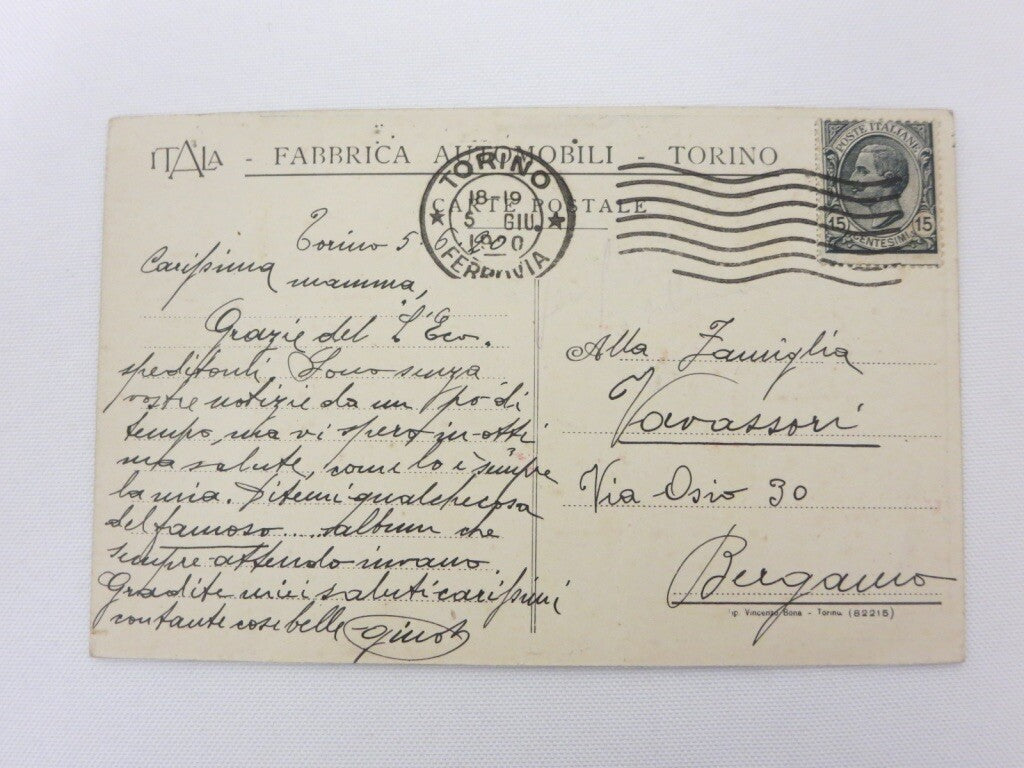 ITALA - FABBRICA AUTOMOBILI - TORINO
CARTE POSTALE
TORINO
18-19
5 GIU.
1920
FERROVIA
POSTE ITALIANE
15 15
CENTESIMI
Torino 5.
Carissima
mamma,
Grazie del L'Eco.
speditomi. Sono senza
vostre notizie da un pò di
tempo, ma vi spero in otti
ma salute, come lo è sempre
la mia. Ditemi qualchecosa
del famoso ..... album che
sempre attendo invano.
Gradite miei saluti carissimi
con tante cose belle Gino
Alla Famiglia
Vavassori
Via Osio 30
Bergamo
ip. Vincenzo Bona - Torino (82215)